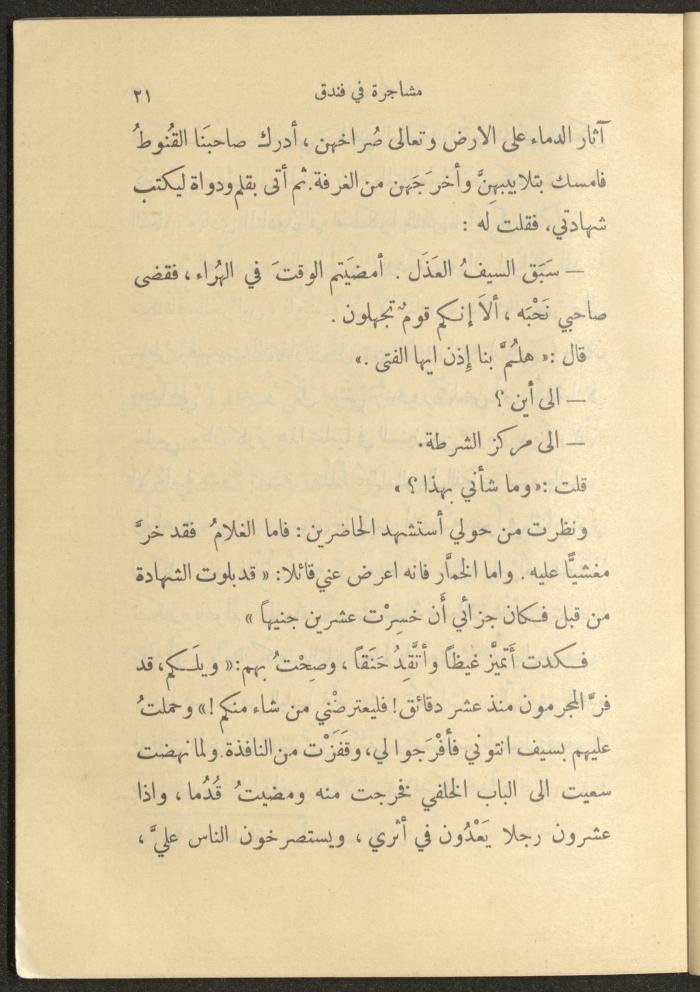 مشاجرة في فندق ٢١
آثار الدماء على الارض وتعالى صُراخهن ، أدرك صاحبنَا القُنوطُ
فامسك بتلابيبهنَّ وأخرَجَهن من الغرفة. ثم أتى بقلم ودواة ليكتب
شهادتي، فقلت له :
— سَبَق السيفُ العَذَل . أمضيَتم الوقتَ في الهُراء ، فقضى
صاحبي نَحْبَه ، ألاَ إنكم قومٌ تجهلون .
قال :« هلُمَّ بنا إِذن ايها الفتى .»
— الى أين ؟
— الى مركز الشرطة.
قلت :« وما شأني بهذا ؟ »
ونظرت من حولي أستشهد الحاضرين : فاما الغلامُ فقد خرَّ
مغشيًّا عليه . واما الخمَّار فانه اعرض عني قائلا: « قد بلوت الشهادة
من قبل فكان جزائي أَن خسِرْت عشرين جنيهاً »
فكدت أَتميَّز غيظاً وأتَّقِدُ حَنَقاً ، وصِحْتُ بهم:« ويلَكم، قد
فرَّ المجرمون منذ عشر دقائق! فليعترضْني من شاء منكم !» وحملتُ
عليهم بسيف انتوني فأفْرَجوا لي، وقَفَزْت من النافذة. ولما نهضت
سعيت الى الباب الخلفي فخرجت منه ومضيتُ قُدُما ، واذا
عشرون رجلا يَعْدُون في أثري ، ويستصرخون الناس عليَّ ،